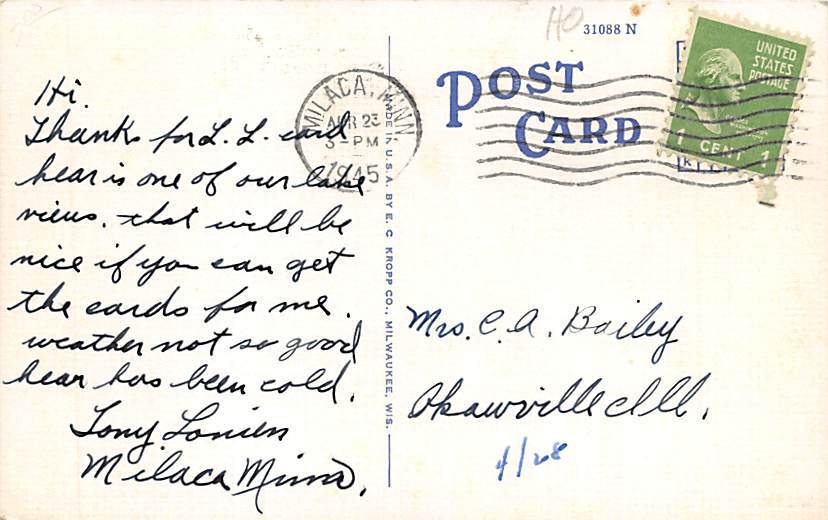 HO
31088 N
POST
CARD
UNITED
STATES
POSTAGE
1 CENT 1
MILACA, MINN.
APR 23
3-PM
1945
MADE IN U.S.A. BY E. C. KROPP CO., MILWAUKEE, WIS.
Hi.
Thanks for L. L. card
hear is one of our lake
views. that will be
nice if you can get
the cards for me.
weather not so good
hear has been cold.
Tony
Milaca Minn.
Mrs. C. A. Bailey
Okawville Ill.
4/28